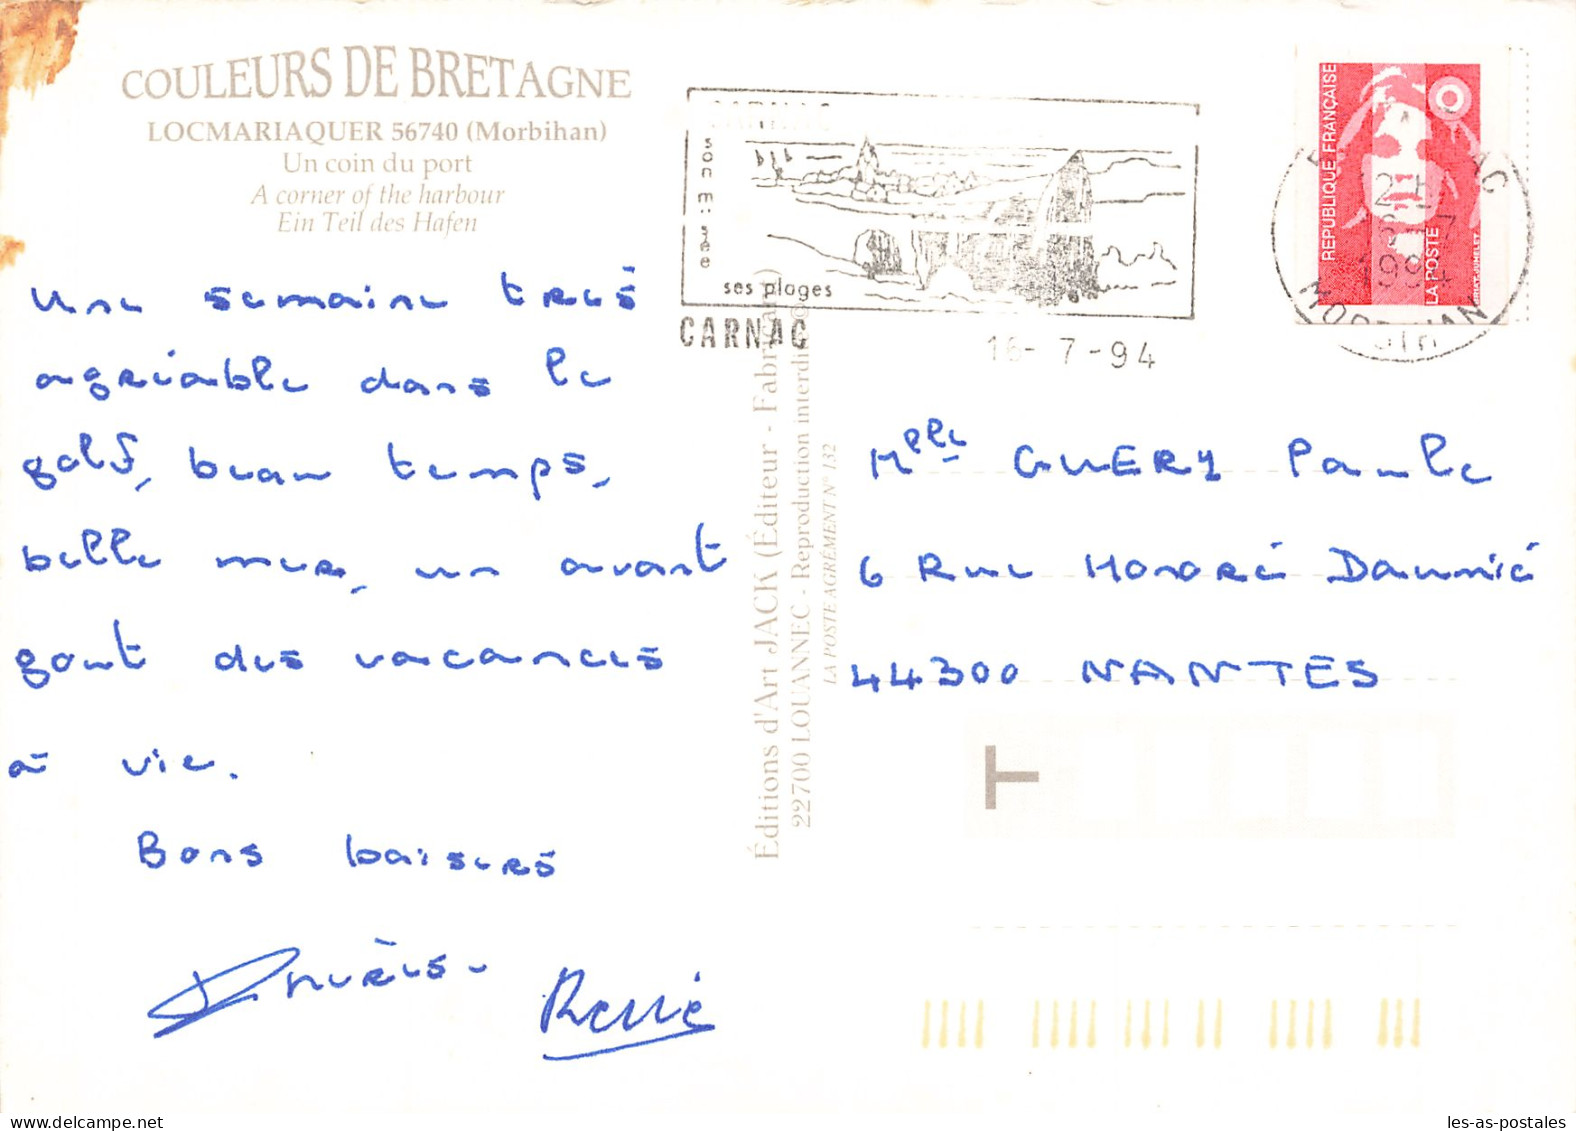 COULEURS DE BRETAGNE
LOCMARIAQUER 56740 (Morbihan)
Un coin du port
A corner of the harbour
Ein Teil des Hafen
Une semaine très
agréable dans le
golf, beau temps,
belle mer, un avant
gout des vacances
à vie.
Bons baisers
René
CARNAC
son musée
ses plages
CARNAC
16-7-94
RÉPUBLIQUE FRANÇAISE
LA POSTE
1994
MORBIHAN
Éditions d'Art JACK (Éditeur - Fabricant)
22700 LOUANNEC - Reproduction interdite
LA POSTE AGRÉMENT N° 132
Mlle GUERY Paule
6 Rue Honoré Daumié
44300 NANTES
T
les-as-postales